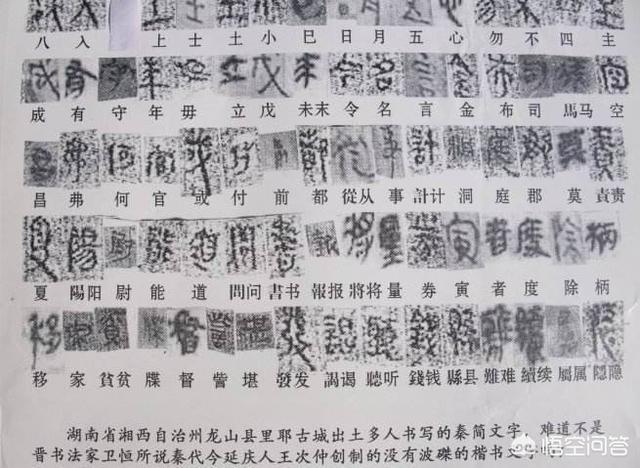 八 入 上 士 土 小 巳 日 月 五 心 勿 不 四 主
成 有 守 年 毋 立 戊 未末 令 名 言 金 布 司 馬马 空
昌 弗 何 官 或 付 前 都 從从 事 計计 洞 庭 郡 莫 責责
夏 陽阳 尉 能 道 問问 書书 報报 將将 量 券 寅 者 度 除 柄
移 家 貧贫 牒 督 訾 堪 發发 謁谒 聽听 錢钱 縣县 難难 續续 屬属 隱隐
湖南省湘西自治州龙山县里耶古城出土多人书写的秦简文字，难道不是
晋书法家卫恒所说秦代今延庆人王次仲创制的没有波磔的楷书文字
悟空问答